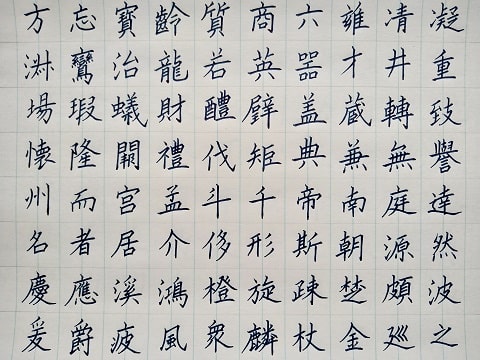 方忘寶齡質商六雍凊凝
淋鸞治龍若英器才井重
場瑕蟻財醴璧盖蔵轉致
懐隆闕禮伐矩典兼無譽
州而宫孟斗千帝南庭達
名者居介侈形斯朝源然
慶應溪鴻橙旋疎楚頗波
爰爵疲風衆麟杖金廵之